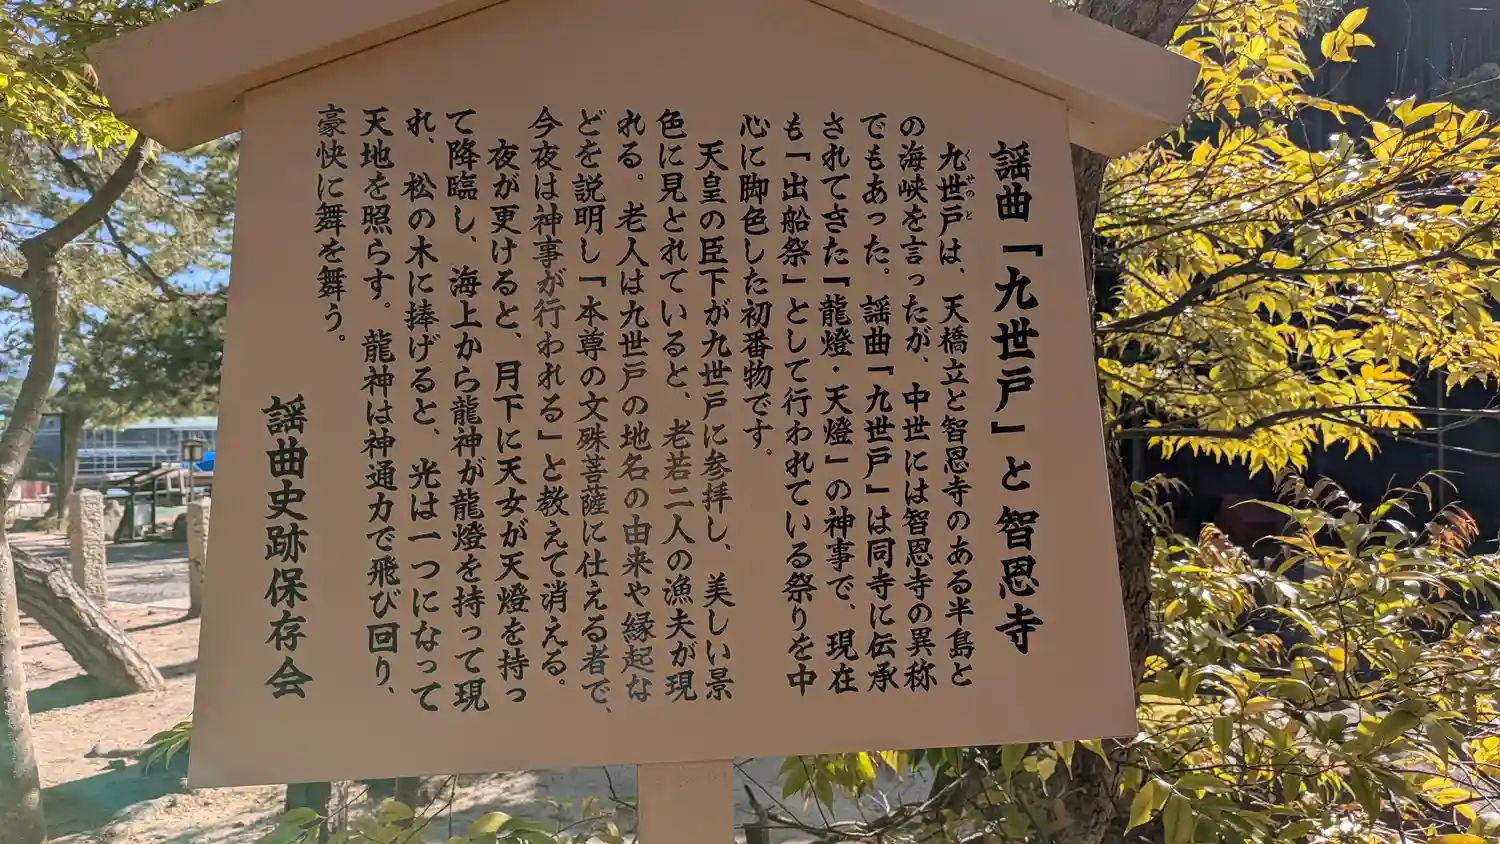 謡曲「九世戸」と智恩寺
くせのと
九世戸は、天橋立と智恩寺のある半島と
の海峡を言ったが、中世には智恩寺の異称
でもあった。謡曲「九世戸」は同寺に伝承
されてきた「龍燈・天燈」の神事で、現在
も「出船祭」として行われている祭りを中
心に脚色した初番物です。
天皇の臣下が九世戸に参拝し、美しい景
色に見とれていると、老若二人の漁夫が現
れる。老人は九世戸の地名の由来や縁起な
どを説明し「本尊の文殊菩薩に仕える者で、
今夜は神事が行われる」と教えて消える。
夜が更けると、月下に天女が天燈を持っ
て降臨し、海上から龍神が龍燈を持って現
れ、松の木に捧げると、光は一つになって
天地を照らす。龍神は神通力で飛び回り、
豪快に舞を舞う。
謡曲史跡保存会